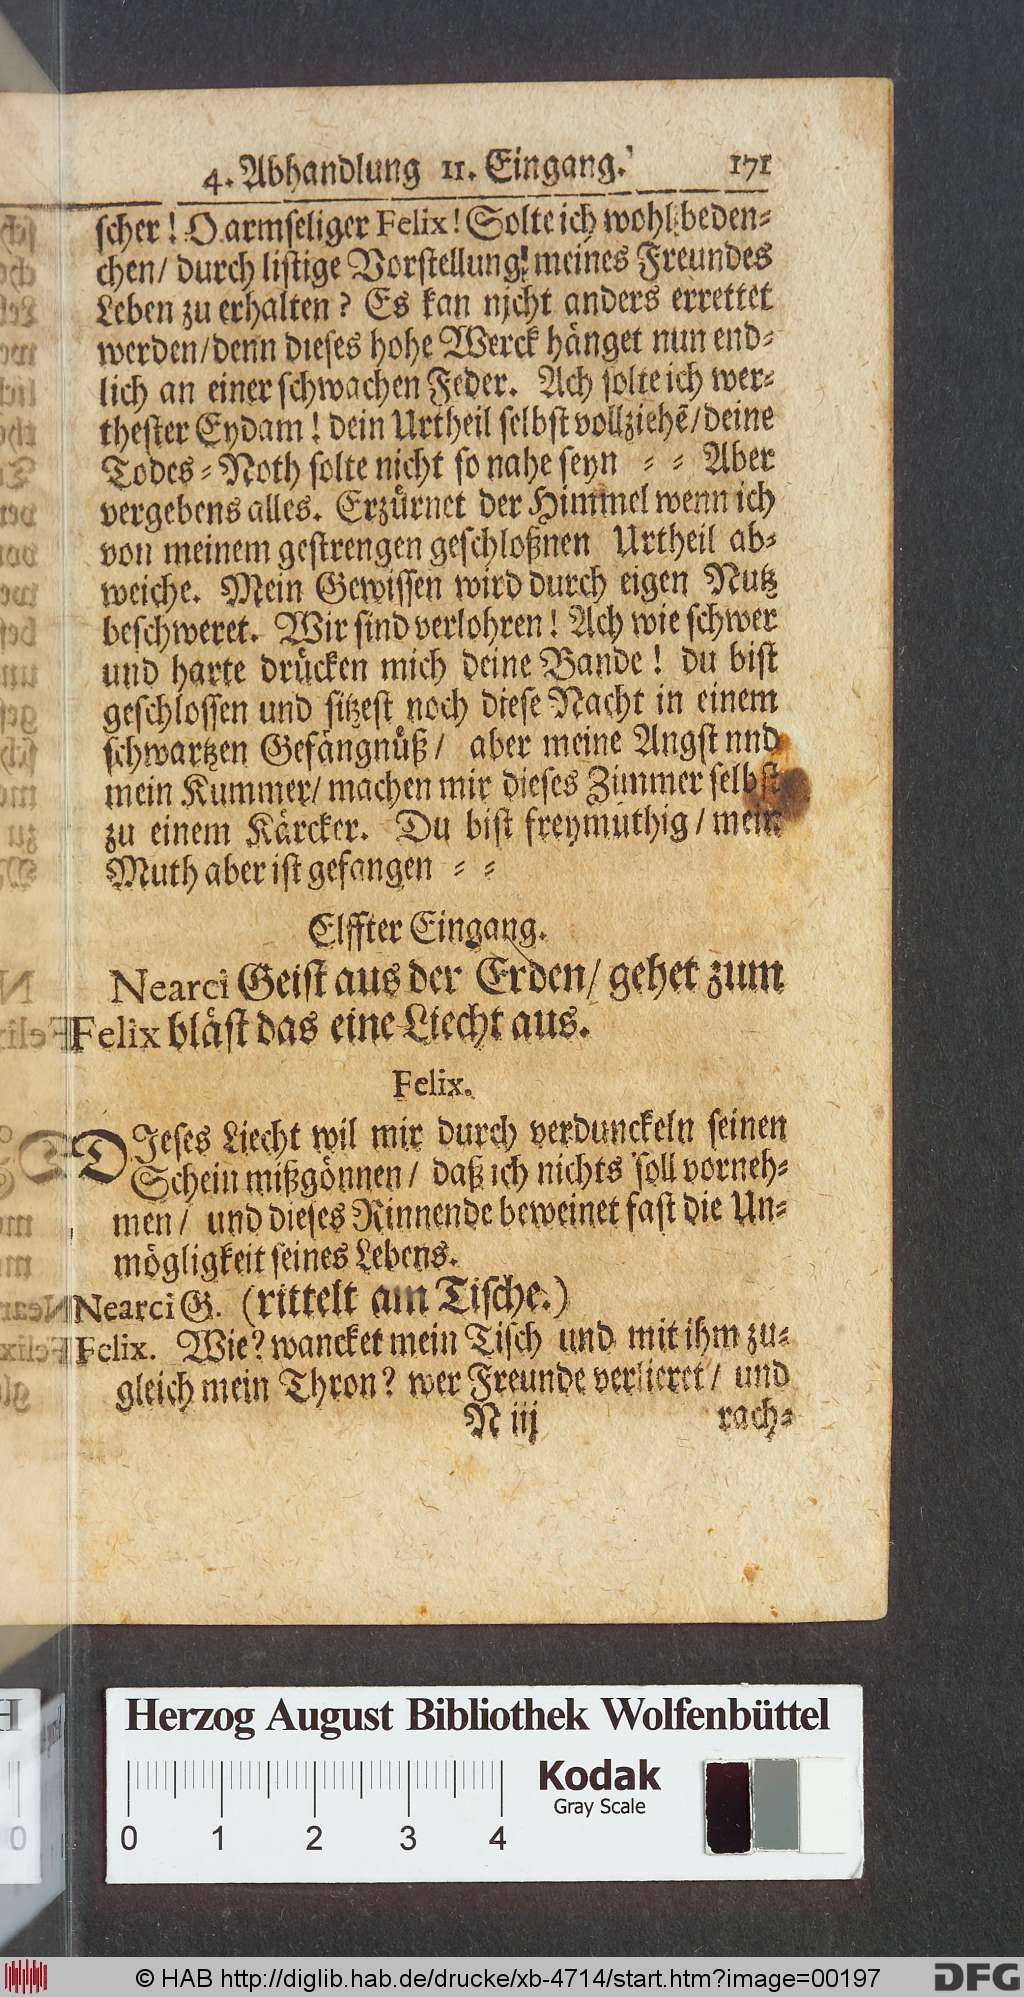 4. Abhandlung 11. Eingang. 171
scher! O armseliger Felix! Solte ich wohl beden⸗
cken/ durch listige Vorstellung! meines Freundes
Leben zu erhalten? Es kan nicht anders errettet
werden/denn dieses hohe Werck hänget nun end⸗
lich an einer schwachen Feder. Ach solte ich wer⸗
thester Eydam! dein Urtheil selbst vollziehẽ/deine
Todes⸗Noth solte nicht so nahe seyn ⸗ ⸗ Aber
vergebens alles. Erzürnet der Himmel wenn ich
von meinem gestrengen geschloßnen Urtheil ab⸗
weiche. Mein Gewissen wird durch eigen Nutz
beschweret. Wir sind verlohren! Ach wie schwer
und harte drücken mich deine Bande! du bist
geschlossen und sitzest noch diese Nacht in einem
schwartzen Gefängnüß/ aber meine Angst nnd
mein Kummer/ machen mir dieses Zimmer selbst
zu einem Kärcker. Du bist freymuthig/ mein
Muth aber ist gefangen ⸗ ⸗
Elffter Eingang.
Nearci Geist aus der Erden/ gehet zum
Felix bläst das eine Liecht aus.
Felix.
DIeses Liecht wil mir durch verdunckeln seinen
Schein mißgönnen/ daß ich nichts soll vorneh⸗
men/ und dieses Rinnende beweinet fast die Un⸗
mögligkeit seines Lebens.
Nearci G. (rittelt am Tische.)
Felix. Wie? wancket mein Tisch und mit ihm zu⸗
gleich mein Thron? wer Freunde verlieret/ und
N iij rach⸗
Herzog August Bibliothek Wolfenbüttel
Kodak
Gray Scale
0 1 2 3 4
© HAB http://diglib.hab.de/drucke/xb-4714/start.htm?image=00197
DFG